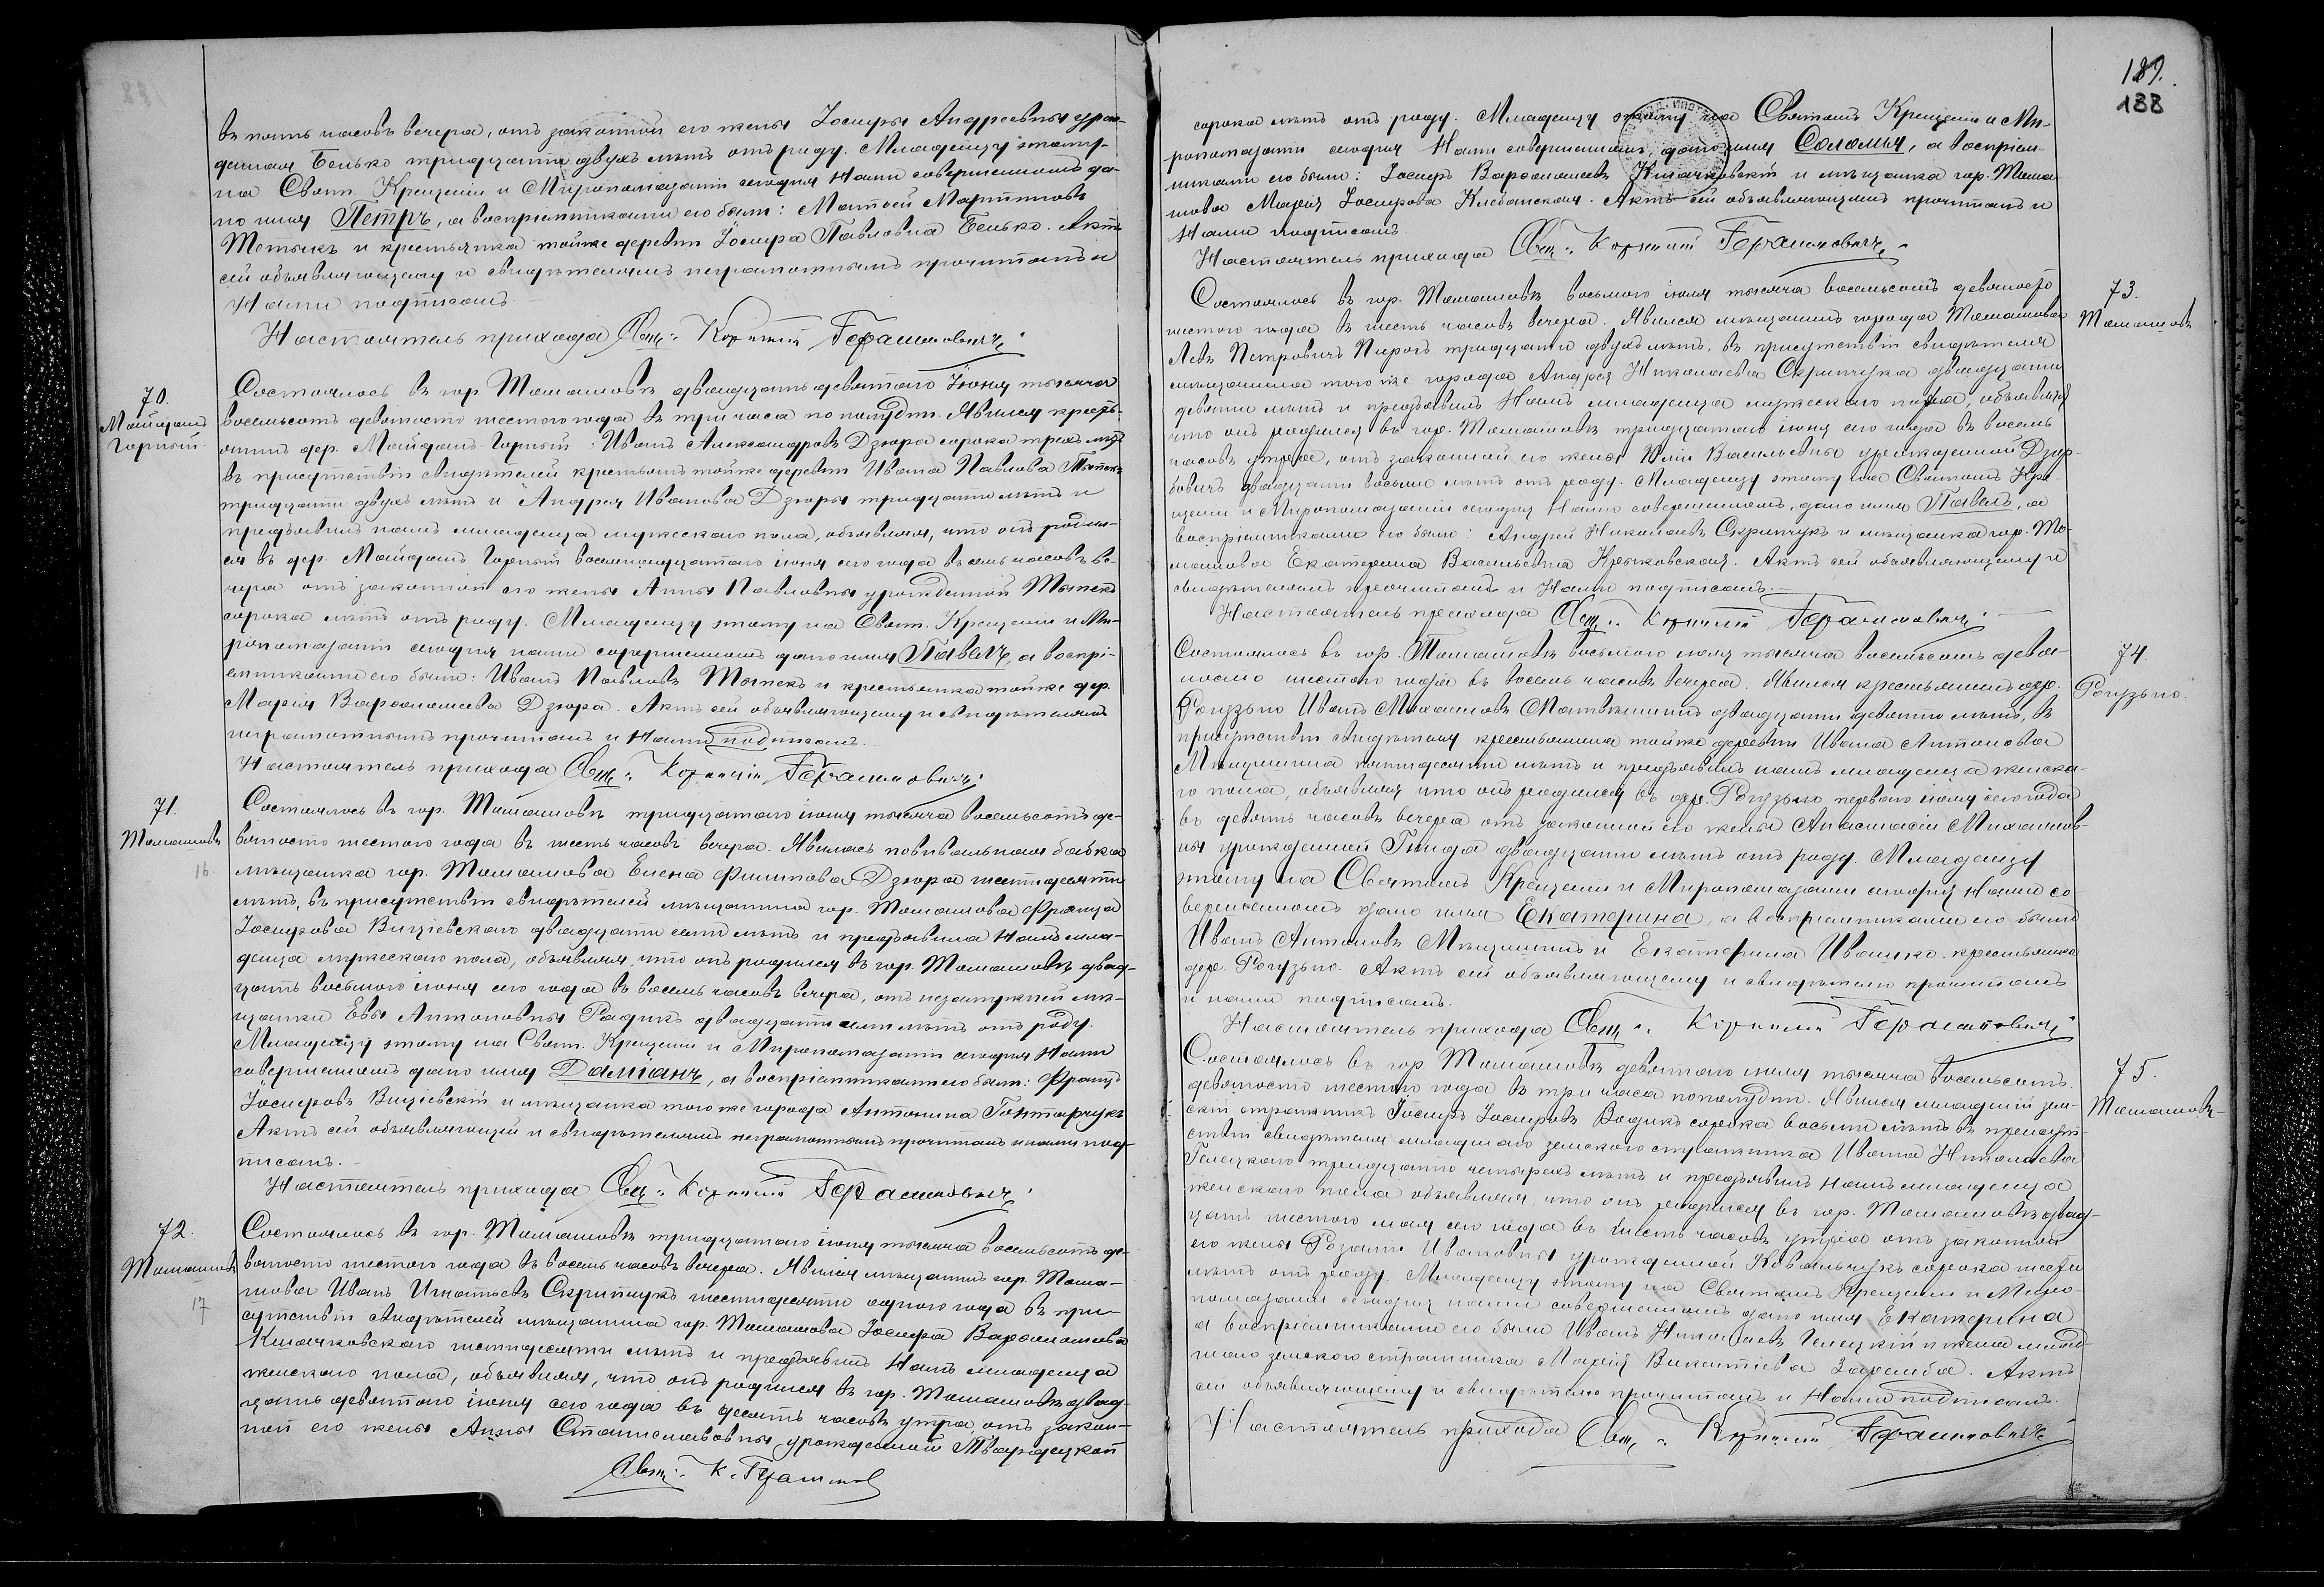 въ пять часовъ вечера, отъ законной его жены Іосифы Андреевны урож-
денная Бенько тридцати двухъ лѣтъ отъ роду. Младенцу этому
на Свят. Крещеніи и Мѵропомазаніи сегодня Нами совершенномъ да-
но имя Петръ, а воспріемниками его были: Матвей Мартиновъ
и крестьянка тойже деревни Іосифа Павловна Бенько. Актъ
сей объявляющему и свидѣтелямъ неграмотнымъ прочитанъ и
Нами подписанъ.
Настоятель прихода Свящ. Корнилій Герасимовичъ.
70.
Майданъ
Горный
Состоялось въ гор. Томашовѣ двадцать девятаго Іюня тысяча
восемьсотъ девяносто шестого года въ три часа по полудни. Явился кресть-
янинъ дер. Майданъ-Горный: Иванъ Александровъ Дзюра сорока трехъ лѣтъ
въ присутствіи свидѣтелей крестьянъ тойже деревни Ивана Павлова
тридцати двухъ лѣтъ и Андрея Иванова Дзюры тридцати лѣтъ и
предъявилъ намъ младенца мужескаго пола, объявляя, что онъ родил-
ся въ дер. Майданъ Горный восемнадцатого іюня сего года въ семь часовъ ве-
чера отъ законной его жены Анны Павловны урожденной
сорока лѣтъ отъ роду. Младенцу этому на Свят. Крещеніи и Мѵ-
ропомазаніи сегодня нами совершенномъ дано имя Павелъ, а воспрі-
емниками его были: Иванъ Павловъ и крестьянка тойже дер.
Марія Варфоломеева Дзюра. Актъ сей объявляющему и свидѣтелямъ
неграмотнымъ прочитанъ и Нами подписанъ.
Настоятель прихода Свящ. Корнилій Герасимовичъ.
71.
Томашовъ
16.
Состоялось въ гор. Томашовѣ тридцатаго іюня тысяча восемьсотъ де-
вяносто шестого года въ шесть часовъ вечера. Явилась повивальная бабка
мѣщанка гор. Томашова Елена Филипова Дзюра шестидесяти
лѣтъ, въ присутствіи свидѣтелей мѣщанина гор. Томашова Франца
Іосифова двадцати семи лѣтъ и предъявила Намъ мла-
денца мужескаго пола, объявляя, что онъ родился въ гор. Томашовѣ двад-
цать восьмого іюня сего года въ восемь часовъ вечера, отъ незамужней мѣ-
щанки Евы Антоновны Радикъ двадцати семи лѣтъ отъ роду.
Младенцу этому на Свят. Крещеніи и Мѵропомазаніи сегодня Нами
совершенномъ дано имя Даміанъ, а воспріемниками его были: Францъ
Іосифовъ и мѣщанка того же города Антонина Гонтарчукъ
Актъ сей объявляющей и свидѣтелямъ неграмотнымъ прочитанъ и нами под-
писанъ.
Настоятель прихода Свящ. Корнилій Герасимовичъ.
72.
Томашовъ
17
Состоялось въ гор. Томашовѣ тридцатаго іюня тысяча восемьсотъ де-
вяносто шестого года въ восемь часовъ вечера. Явился мѣщанинъ гор. Тома-
шова Иванъ Игнатьевъ Скрипчукъ шестидесяти одного года въ при-
сутствіи свидѣтелей мѣщанина гор. Томашова Іосифа Варфоломеева
шестидесяти лѣтъ и предъявилъ Намъ младенца
женскаго пола, объявляя, что онъ родился въ гор. Томашовѣ двад-
цать девятаго іюня сего года въ десять часовъ утра, отъ закон-
ной его жены Анны Станиславовны урожденной Твардецкой
Свящ. К. Герасимов
189.
188
сорока лѣтъ отъ роду. Младенцу этому на Святомъ Крещеніи и Мѵ-
ропомазаніи сегодня Нами совершенномъ, дано имя Соломія, а воспріем-
никами его были: Іосифъ Варфоломеевъ и мѣщанка гор. Тома-
шова Марія Іосифова Клебанская. Актъ сей объявляющимъ прочитанъ и
Нами подписанъ
Настоятель прихода Свящ. Корнилій Герасимовичъ.
73.
Томашовъ
Состоялось въ гор. Томашовѣ восьмого іюля тысяча восемьсотъ девяносто
шестого года въ шесть часовъ вечера. Явился мѣщанинъ города Томашова
Левъ Петровичъ Пирогъ тридцати двухъ лѣтъ, въ присутствіи свидѣтеля
мѣщанина того же города Андрея Николаева Скрипчука двадцати
девяти лѣтъ и предъявилъ Намъ младенца мужескаго пола, объявляя
что онъ родился въ гор. Томашовѣ тридцатаго іюня сего года въ восемь
часовъ утра, отъ законной его жены Юліи Васильевны урожденной
двадцати восьми лѣтъ отъ роду. Младенцу этому на Святомъ Кре-
щеніи и Мѵропомазаніи сегодня Нами совершенномъ, дано имя Павелъ, а
воспріемниками его были: Андрей Николаевъ Скрипчукъ и мѣщанка гор. То-
машова Екатерина Васильевна Крыжовская. Актъ сей объявляющему и
свидѣтелямъ прочитанъ и Нами подписанъ.
Настоятель прихода Свящ. Корнилій Герасимовичъ.
74.
Рогузьно.
Состоялось въ гор. Томашовѣ восьмого іюля тысяча восемьсотъ девя-
носто шестого года въ восемь часовъ вечера. Явился крестьянинъ дер.
Рогузьно Иванъ Михаиловъ двадцати девяти лѣтъ, въ
присутствіи свидѣтеля крестьянина тойже деревни Ивана Антонова
пятидесяти лѣтъ и предъявилъ намъ младенца женска-
го пола, объявляя что онъ родился въ дер. Рогузьно перваго іюля сего года
въ девять часовъ вечера отъ законной его жены Анастасіи Михаилов-
ны урожденной Гнида двадцати лѣтъ отъ роду. Младенцу
этому на Святомъ Крещеніи и Мѵропомазаніи сегодня Нами со-
вершенномъ дано имя Екатерина, а воспріемниками его были
Иванъ Антоновъ и Екатерина Ивашко крестьянка
дер. Рогузьно. Актъ сей объявляющему и свидѣтелю прочитанъ
и нами подписанъ.
Настоятель прихода Свящ. Корнилій Герасимовичъ.
75.
Томашовъ
Состоялось въ гор. Томашовѣ девятаго іюля тысяча восемьсотъ
девяносто шестого года въ три часа пополудни. Явился младшій зем-
скій стражникъ Іосифъ Іосифовъ сорока восьми лѣтъ въ присут-
ствіи свидѣтеля младшаго земскаго стражника Ивана Николаева
Гелецкаго тридцати четырехъ лѣтъ и предъявилъ Намъ младенца
женскаго пола объявляя, что онъ родился въ гор. Томашовѣ двад-
цать шестого мая сего года въ шесть часовъ утра отъ законной
его жены Розаліи Ивановны урожденной Ковальчукъ сорока шести
лѣтъ отъ роду. Младенцу этому на Святомъ Крещеніи и Мѵро-
помазаніи сегодня нами совершенномъ дано имя Екатерина
а воспріемниками его были Иванъ Николаевъ Гелецкій и жена млад-
шаго земскаго стражника Марія Викентіева Заремба. Актъ
сей объявляющему и свидѣтелю прочитанъ и Нами подписанъ.
Настоятель прихода Свящ. Корнилій Герасимовичъ